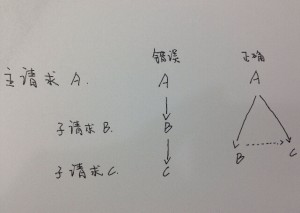 错误 正确
主请求 A. A A
子请求 B. B B C
子请求 C. C